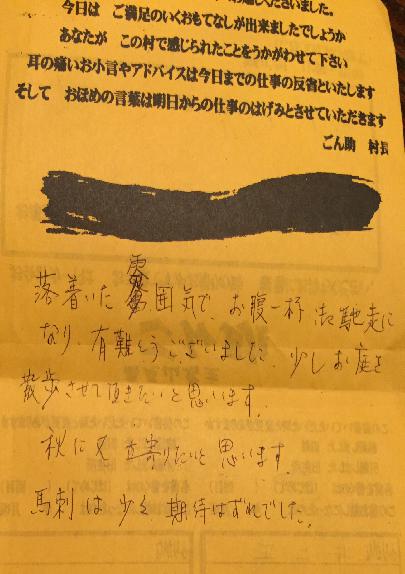 くださいました。
今日は　ご満足のいくおもてなしが出来ましたでしょうか
あなたが　この村で感じられたことをうかがわせて下さい
耳の痛いお小言やアドバイスは今日までの仕事の反省といたします
そして　おほめの言葉は明日からの仕事のはげみとさせていただきます
ごん助　村長
落着いた雰囲気で、お腹一杯御馳走に
なり、有難うございました。少しお庭を
散歩させて頂きたいと思います。
秋に又立寄りたいと思います。
馬刺は少々期待はずれでした。